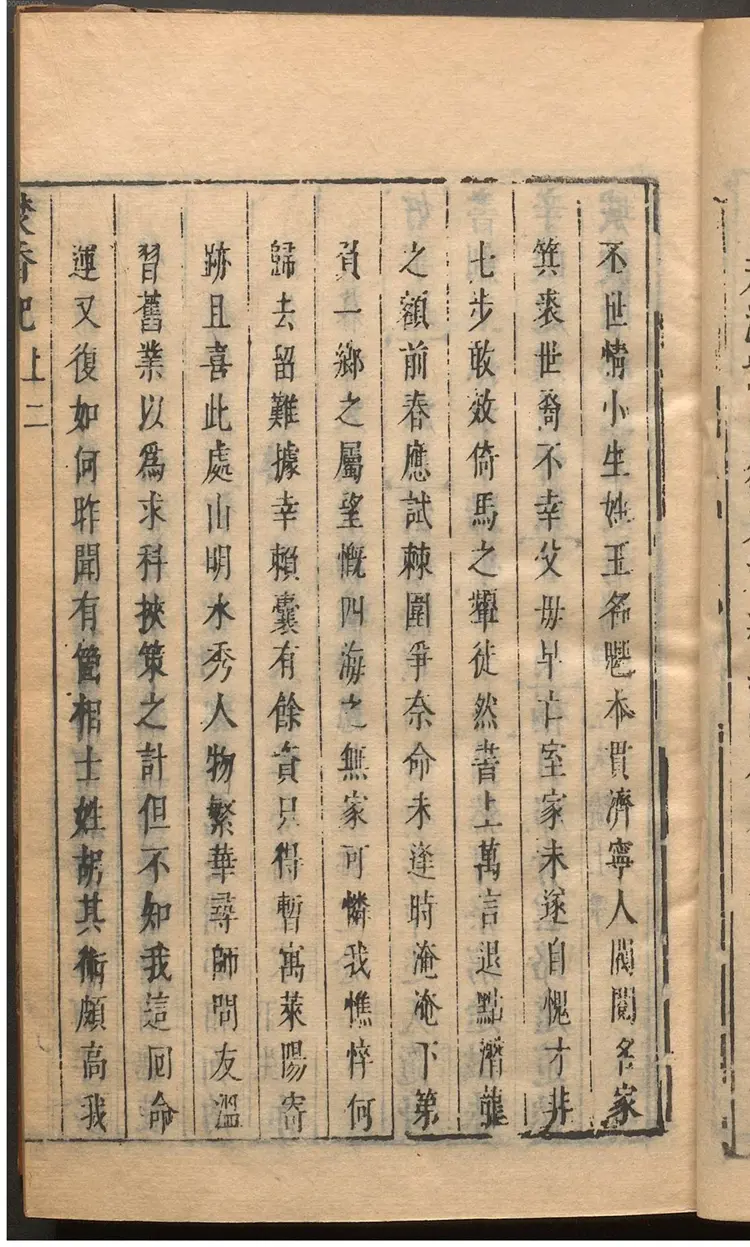 不世情小生姓王名魁本貫濟寧人閥閱名家
箕裘世裔不幸父母早亡室家未遂自愧才非
七步敢效倚馬之徒然書上萬言退點潛龍
之額前春應試棘圍爭奈命未逢時淹淹下第
負一鄉之屬望慨四海之無家可憐我憔悴何
歸去留難據幸賴囊有餘資只得暫寓萊陽寄
跡且喜此處山明水秀人物繁華尋師問友溫
習舊業以爲求科挾策之計但不知我這回命
運又復如何昨聞有箇相士姓胡其術頗高我
焚香記 上 二